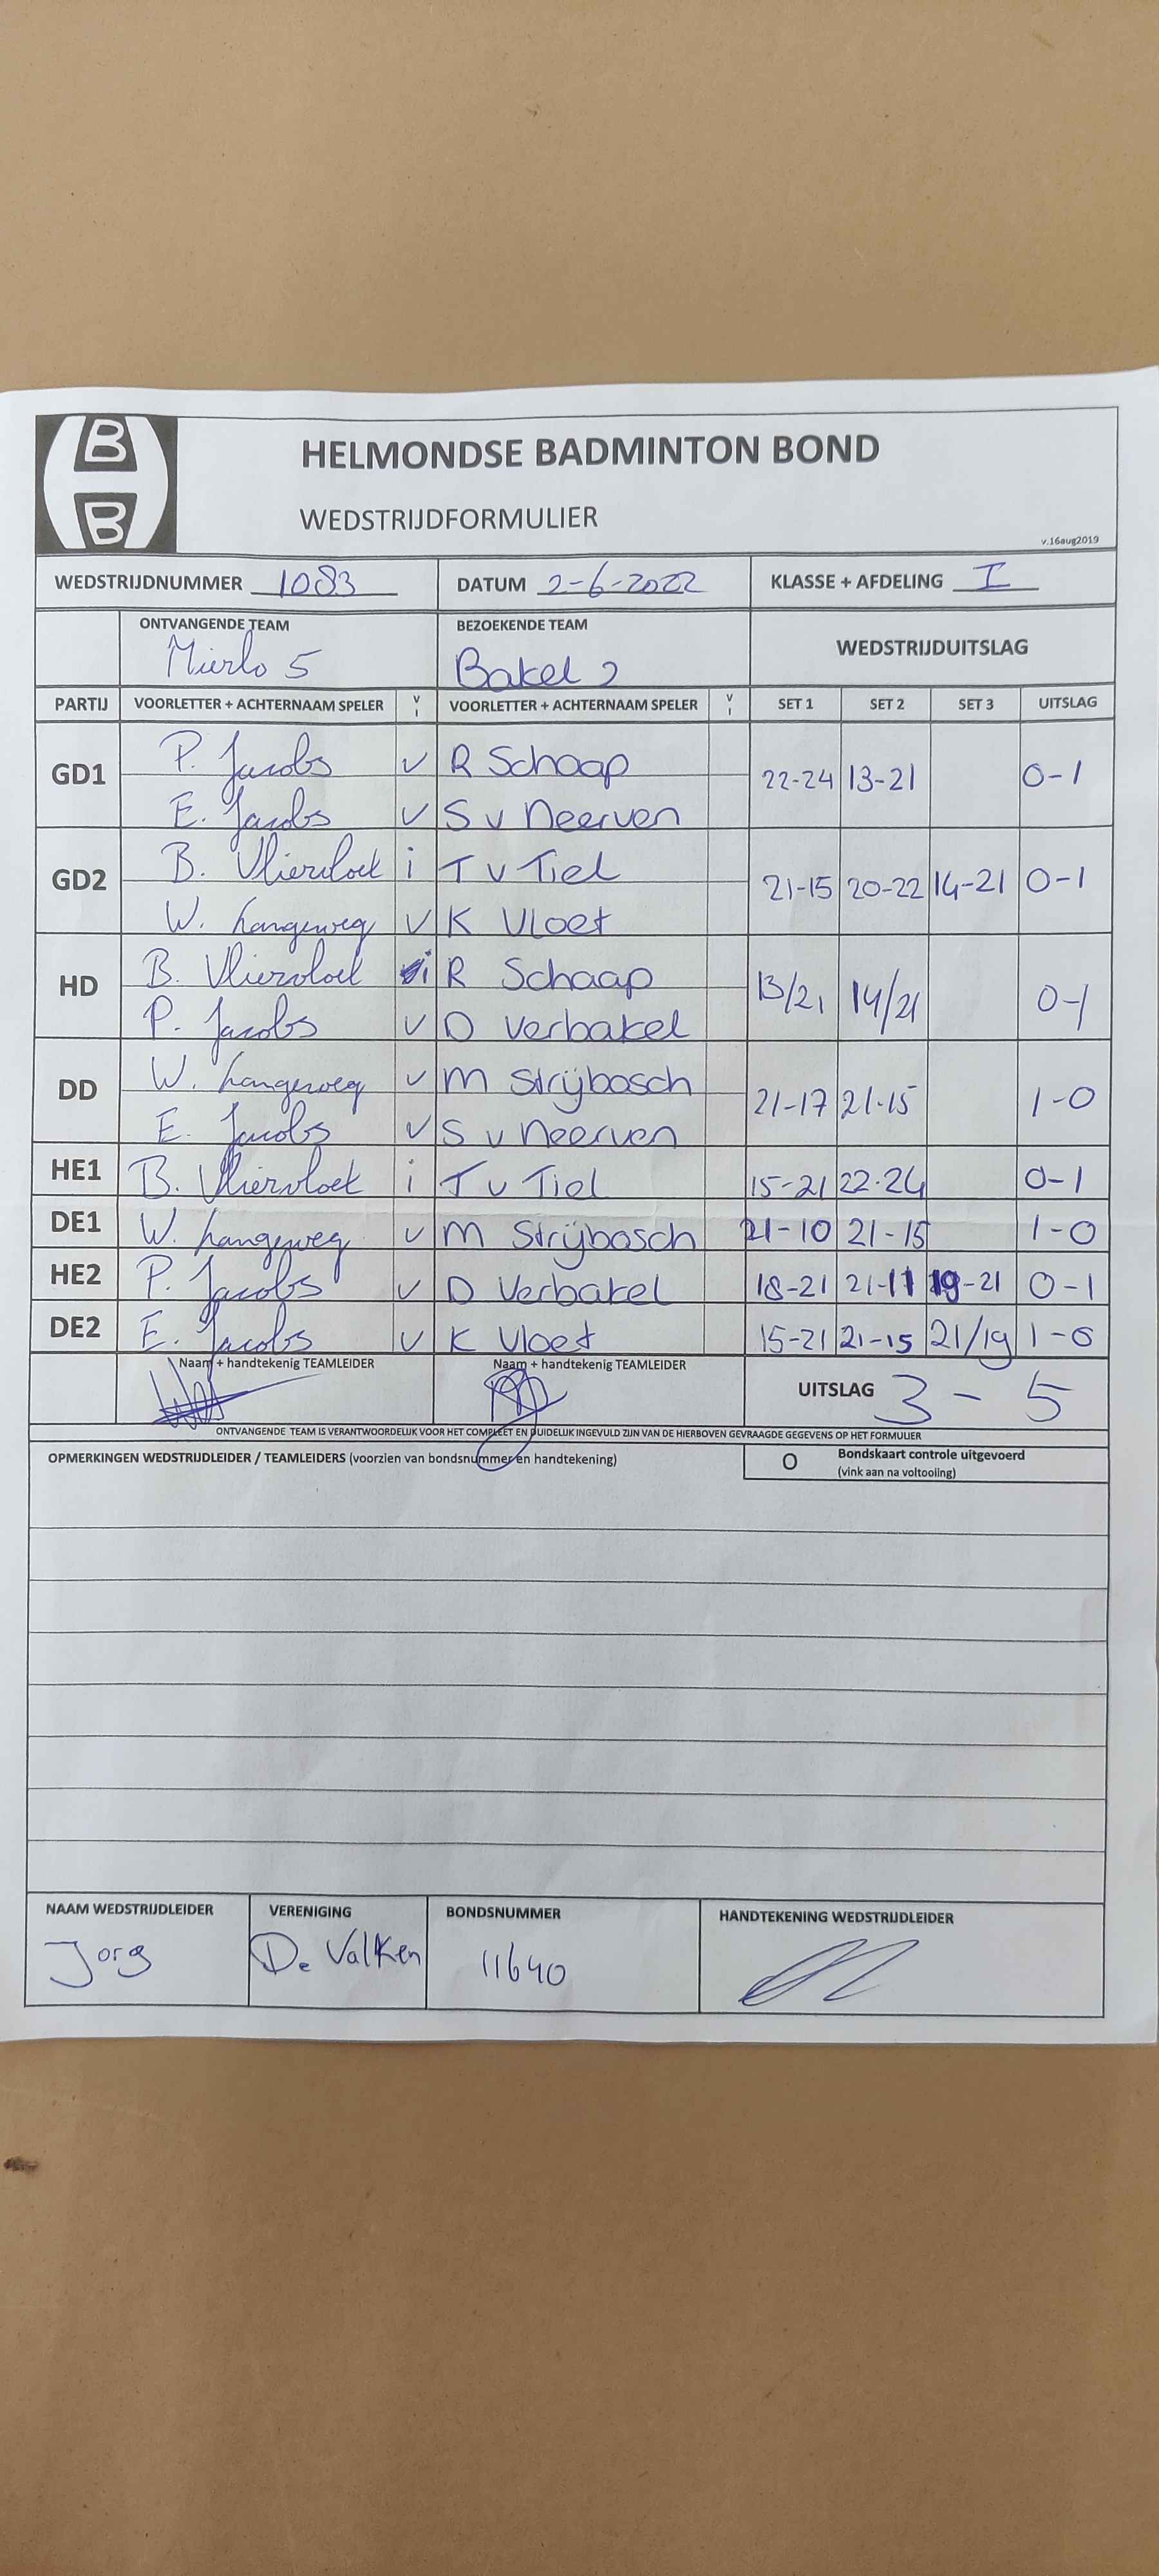 B
B
HELMONDSE BADMINTON BOND
WEDSTRIJDFORMULIER
v.16aug2019
WEDSTRIJDNUMMER 1083 DATUM 2-6-2022 KLASSE + AFDELING I
ONTVANGENDE TEAM BEZOEKENDE TEAM WEDSTRIJDUITSLAG
Mierlo 5 Bakel 2
PARTIJ VOORLETTER + ACHTERNAAM SPELER V I VOORLETTER + ACHTERNAAM SPELER V I SET 1 SET 2 SET 3 UITSLAG
GD1 P. Jacobs v R Schaap 22-24 13-21 0-1
E. Jacobs v S v Neerven
GD2 B. Vliervloet i T v Tiel 21-15 20-22 14-21 0-1
W. Langeweg v K Vloet
HD B. Vliervloet i R Schaap 13/21 14/21 0-1
P. Jacobs v D Verbakel
DD W. Langeweg v M Strijbosch 21-17 21-15 1-0
E. Jacobs v S v Neerven
HE1 B. Vliervloet i T v Tiel 15-21 22-24 0-1
DE1 W. Langeweg v M Strijbosch 21-10 21-15 1-0
HE2 P. Jacobs v D Verbakel 18-21 21-11 19-21 0-1
DE2 E. Jacobs v K Vloet 15-21 21-15 21/19 1-0
Naam + handtekenig TEAMLEIDER Naam + handtekenig TEAMLEIDER UITSLAG 3 - 5
ONTVANGENDE TEAM IS VERANTWOORDELIJK VOOR HET COMPLEET EN DUIDELIJK INGEVULD ZIJN VAN DE HIERBOVEN GEVRAAGDE GEGEVENS OP HET FORMULIER
OPMERKINGEN WEDSTRIJDLEIDER / TEAMLEIDERS (voorzien van bondsnummer en handtekening) O Bondskaart controle uitgevoerd
(vink aan na voltooiing)
NAAM WEDSTRIJDLEIDER VERENIGING BONDSNUMMER HANDTEKENING WEDSTRIJDLEIDER
Jorg De Valken 11640